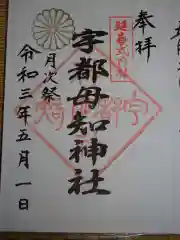 奉拝
延喜式内社
宇都母知神社
月次祭
令和三年五月一日